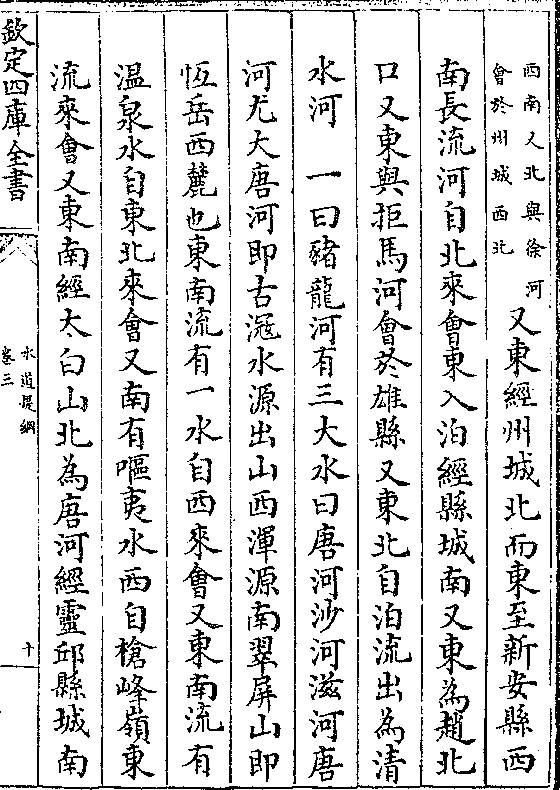 西南又北與徐河
會於州城西北
又東經州城北而東至新安縣西
南長流河自北來會東入泊經縣城南又東為趙北
口又東與拒馬河會於雄縣又東北自泊流出為清
水河　一曰豬龍河有三大水曰唐河沙河滋河唐
河尤大唐河即古滱水源出山西渾源南翠屏山即
恆岳西麓也東南流有一水自西來會又東南流有
溫泉水自東北來會又南有嘔夷水西自槍峰嶺東
流來會又東南經太白山北為唐河經靈邱縣城南
欽定四庫全書
水道提綱
卷三
十